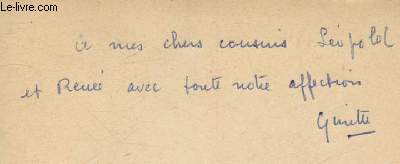 Le-livre.com
à mes chers cousins Léopold
et Renée avec toute notre affection
Ginette